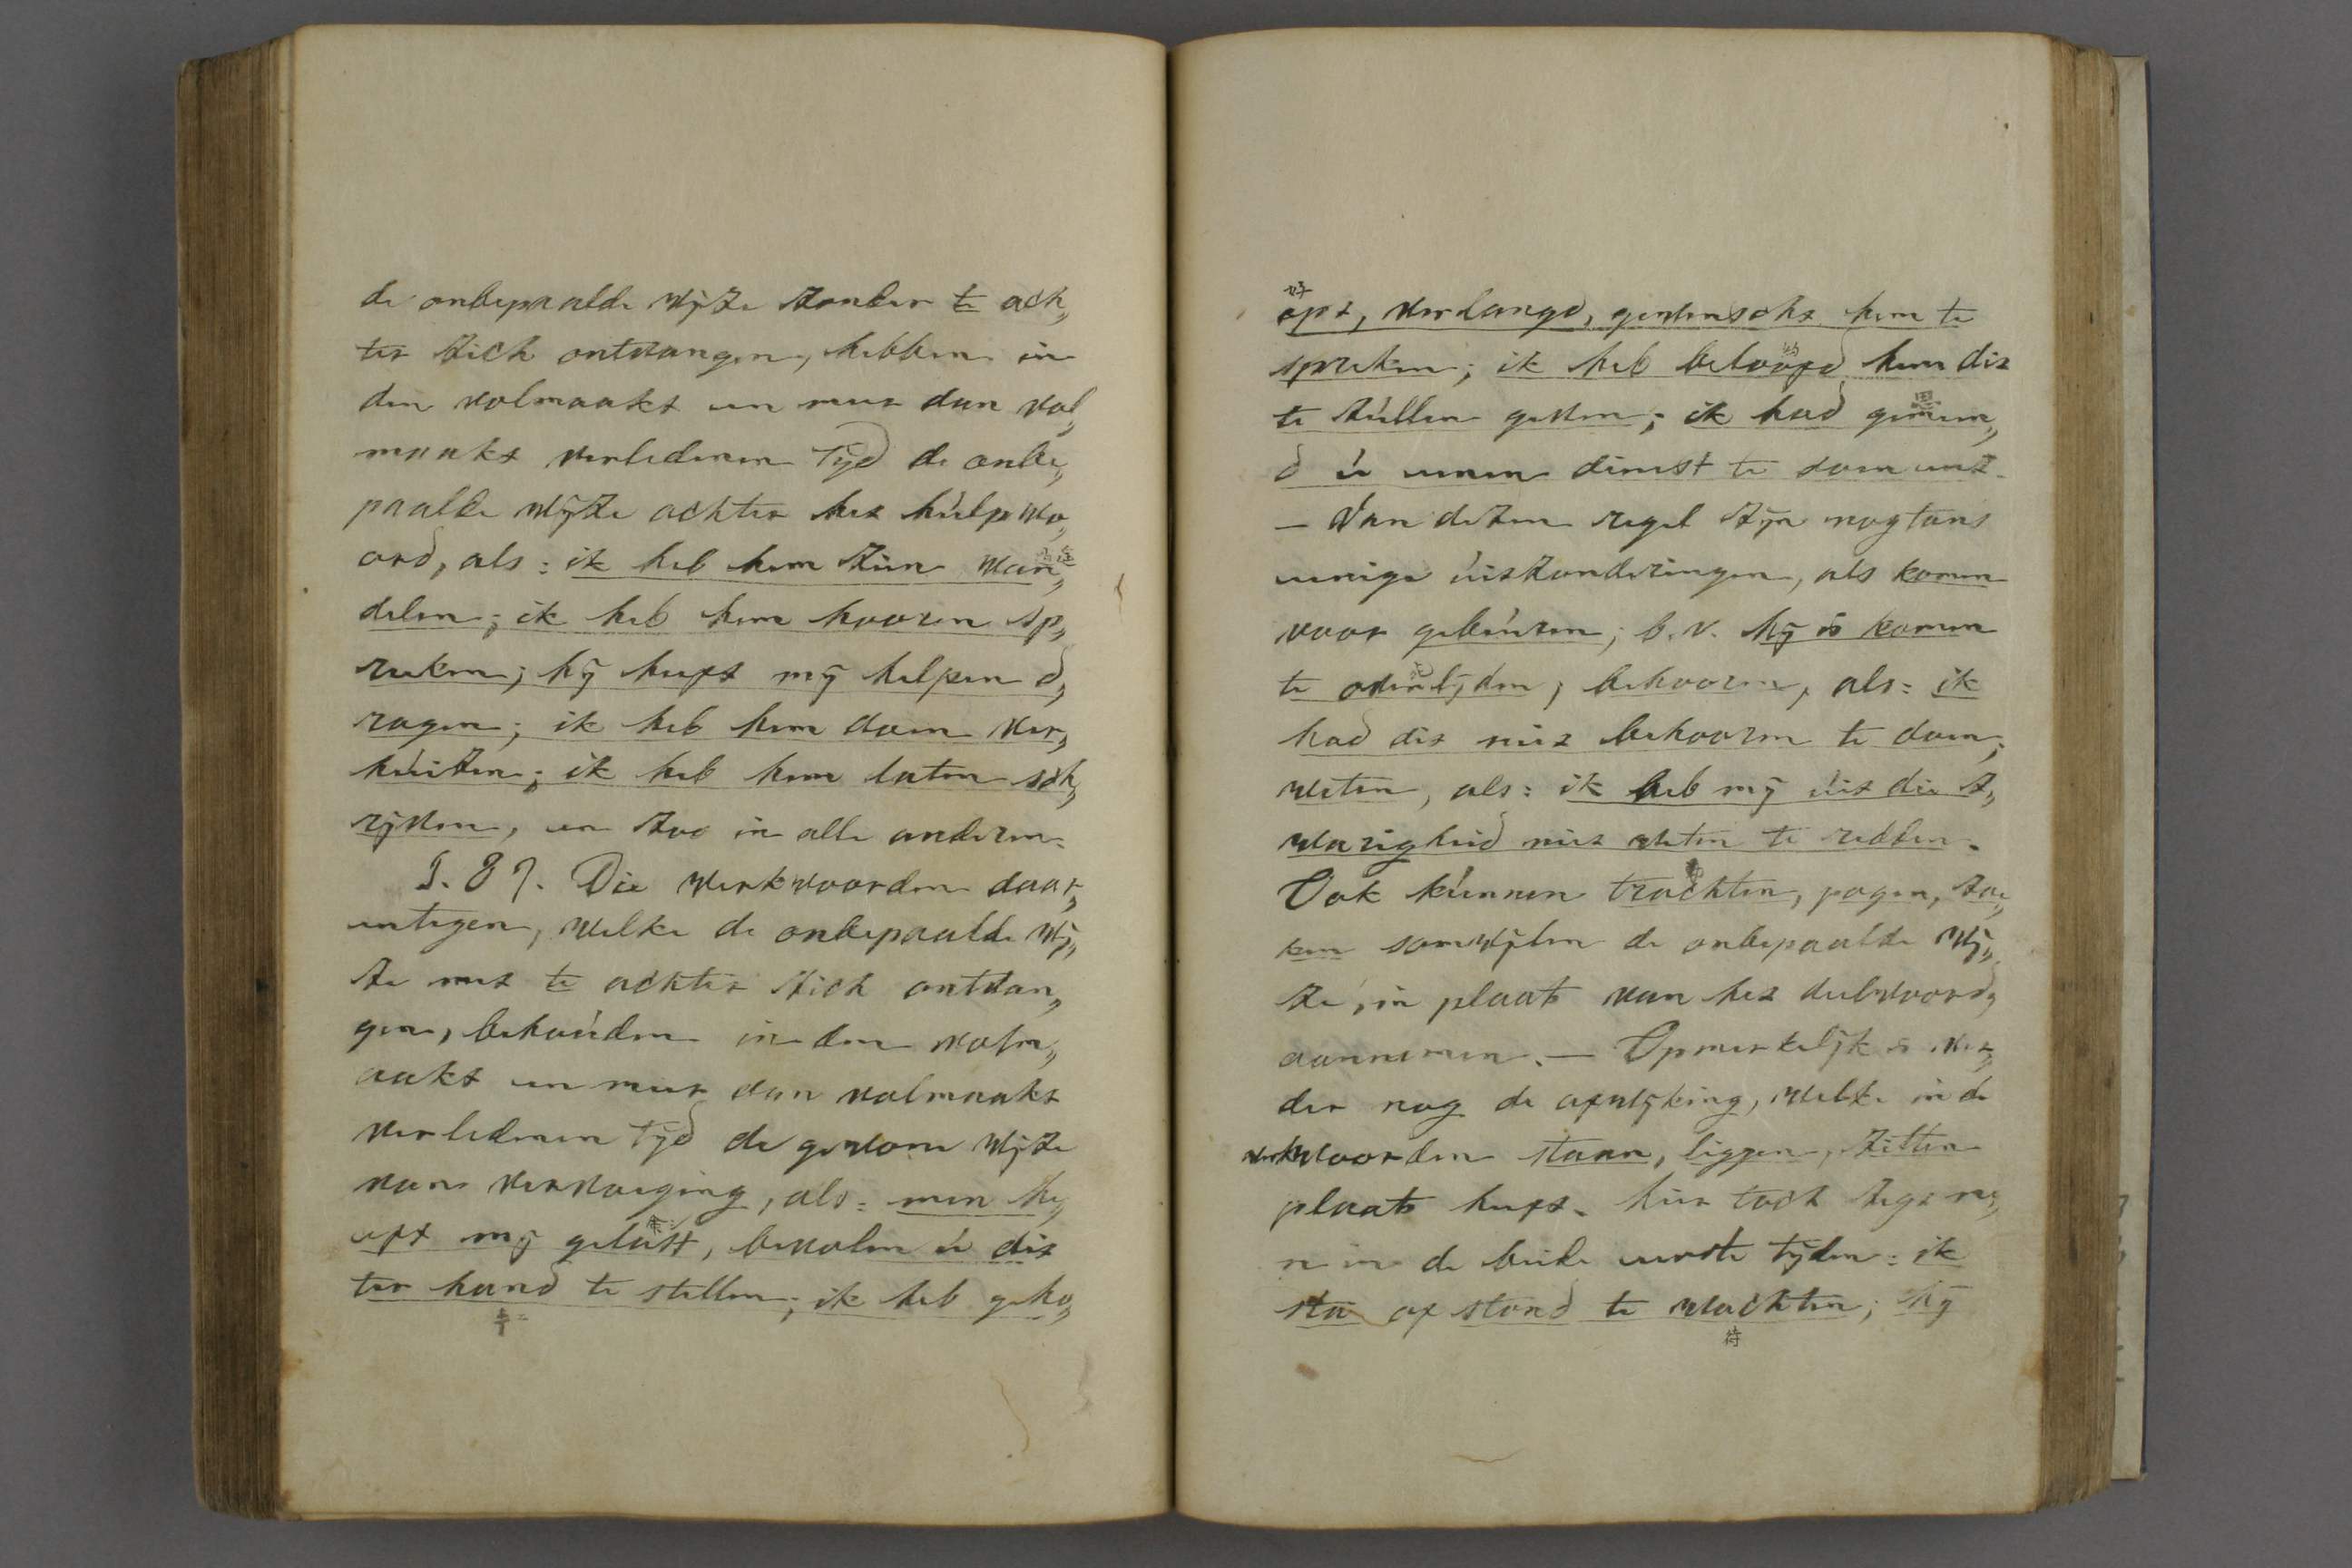 de onbepaalde wijze zonder te ach„
ter zich ontvangen, hebben in
den volmaakt een meer dan vol„
maakt verledenen tijd de onbe„
paalde wijze achter het húlpwo„
ord, als: ik heb hem zien wan„
delen; ik heb hem hooren sp„
reeken; hij heeft mij helpen d„
ragen; ik heb hem doen ver„
húizen; ik heb hem laten sch„
rijven, en zoo in alle anderen.
§. 87. Die werkwoorden daar„
entegen, welke de onbepaalde wij„
ze met te achter zich ontvan„
gen, behoúden in den volm„
aakt en meer dan volmaakt
verledenen tijd de gewone wijze
van vervoeging, als: men he„
eft mij gelast, bevolen ú dit
ter hand te stellen; ik heb geho„
好
opt, verlangd, gewenscht hem te
spreken; ik heb beloofd hem dit
te zúllen geven; ik had gemeen„
思
d ú eenen dienst te doen enz.
— Van dezen regel zijn nogtans
eenige úitzonderingen, als komen
voor gebeúren; b.v. hij is komen
te overlijden; behooren, als: ik
had dit niet behooren te doen;
weten, als: ik heb mij úit die z„
warigheid niet weten te redden.
Ook kúnnen trachten, pogen, zoe„
ken somwijlen de onbepaalde wij„
ze, in plaats van het deelwoord,
aannemen. — Opmerkelijk is ver„
der nog de afwijking, welke in de
werkwoorden staan, liggen, zitten
plaats heeft. hier toch zegt me„
n in de beide eerste tijden: ik
sta of stond te wachten; hij
待